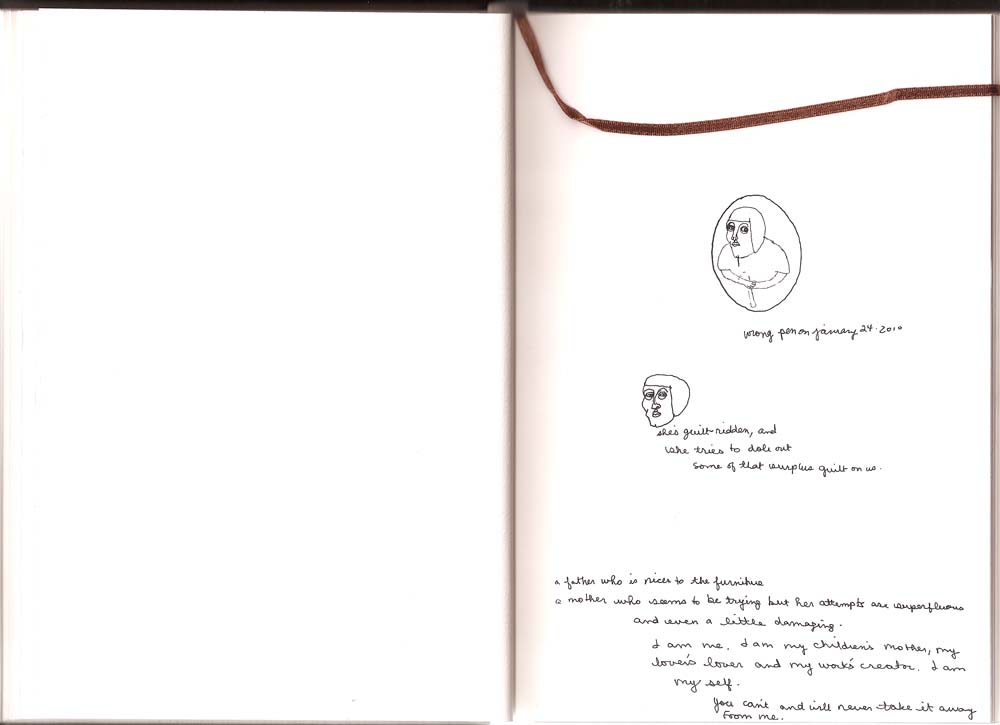 wrong pen on january 24. 2010
she's guilt-ridden, and
she tries to dole out
some of that surplus guilt on us.
a father who is nicer to the furniture
a mother who seems to be trying but her attempts are superfluous
and even a little damaging.
I am me. I am my children's mother, my
lover's lover and my work's creator. I am
my self.
You can't and will never take it away
from me.